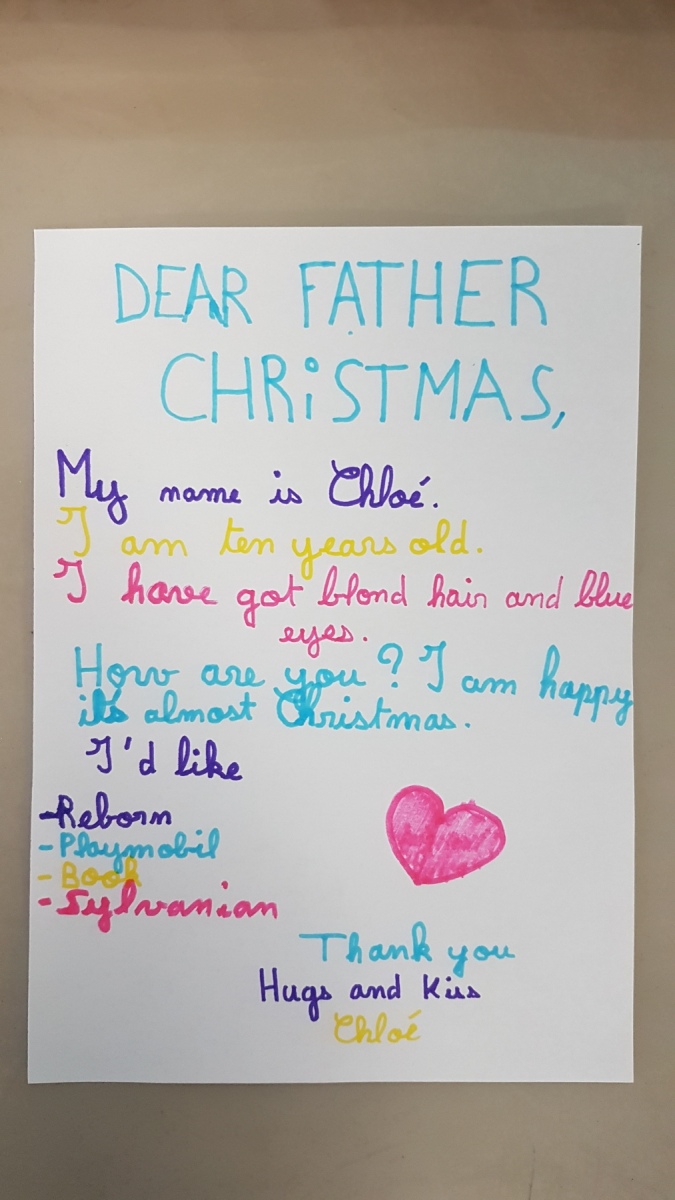 DEAR FATHER
CHRiSTMAS,
My name is Chloé.
I am ten years old.
I have got blond hair and blue
eyes.
How are you? I am happy
it's almost Christmas.
I'd like
-Reborn
-Playmobil
-Book
-Sylvanian
Thank you
Hugs and Kiss
Chloé